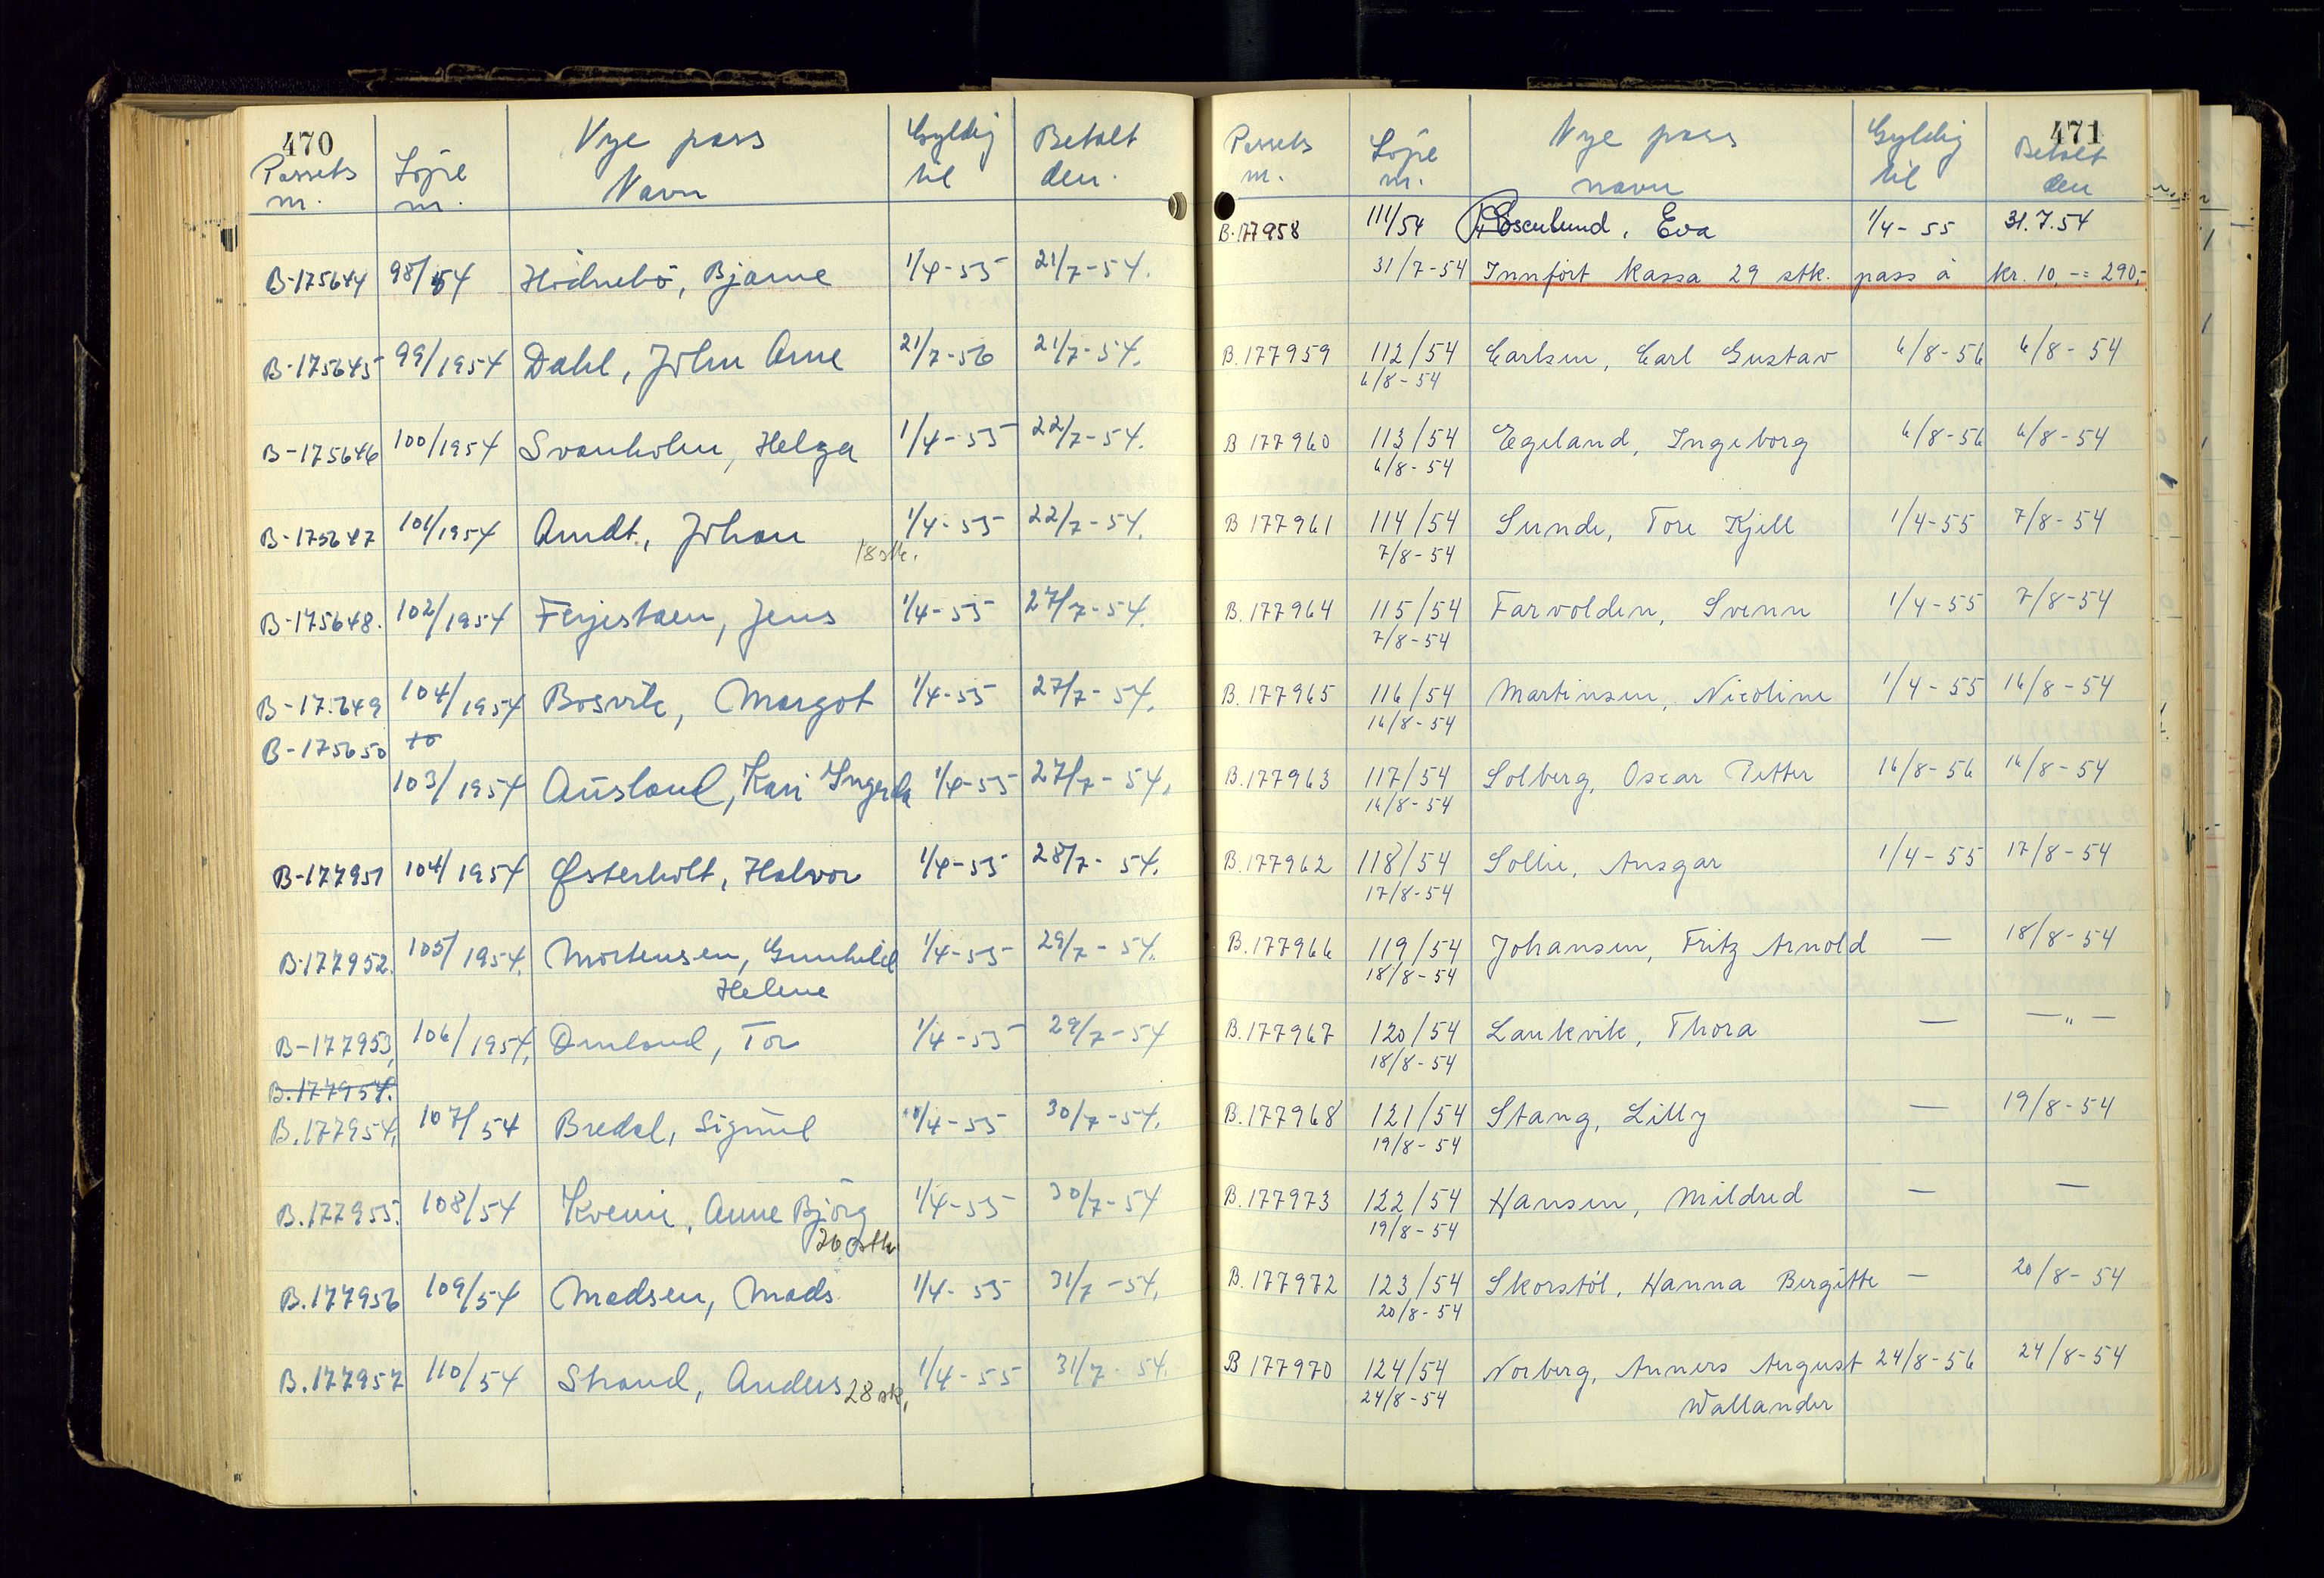 470
Nye pass
Passets nr. Löpe nr. Navn Gyldig til Betalt den.
B-175644 98/54 Hödnebö, Bjarne 1/4-55 21/7-54.
B-175645 99/1954 Dahl, John Arne 21/7-56 21/7-54.
B-175646 100/1954 Svanholm, Helga 1/4-55 22/7-54.
B-175647 101/1954 Arndt, Johan 1/4-55 22/7-54.
18 stk.
B-175648. 102/1954 Jens 1/4-55 27/7-54.
B-17.649 104/1954 Bosvik, Margot 1/4-55 27/7-54.
B-175650 to
103/1954 Ausland, Kari Ingerda 1/4-55 27/7-54.
B-177951 104/1954 Østerholt, Halvor 1/4-55 28/7-54.
B-177952. 105/1954. Mortensen, Gunhild 1/4-55 29/7-54.
Helene
B-177953, 106/1954, Omland, Tor 1/4-55 29/7-54
B.177954.
B.177954, 107/54 Bredal, Sigurd 1/4-55 30/7-54.
B.177955. 108/54 Kveim, Anne Björg 1/4-55 30/7-54
26 stk
B.177956 109/54 Madsen, Mads. 1/4-55 31/7-54.
B.177957 110/54 Strand, Anders 28 stk, 1/4-55 31/7-54.
471
Nye pass
Passets nr. Löpe nr. navn Gyldig til Betalt den
B-177958 111/54 Rosenlund, Eva 1/4-55 31.7.54
31/7-54 Innført kassa 29 stk. pass à kr. 10,-= 290,-
B.177959 112/54 Carlsen, Carl Gustav 6/8-56 6/8-54
6/8-54
B 177960 113/54 Egeland, Ingeborg 6/8-56 6/8-54
6/8-54
B 177961 114/54 Sunde, Tore Kjell 1/4-55 7/8-54
7/8-54
B.177964 115/54 Farvolden, Svenn 1/4-55 7/8-54
7/8-54
B.177965 116/54 Martinsen, Nicoline 1/4-55 16/8-54
16/8-54
B.177963 117/54 Solberg, Oscar Petter 16/8-56 16/8-54
16/8-54
B.177962 118/54 Sollie, Ansgar 1/4-55 17/8-54
17/8-54
B.177966 119/54 Johansen, Fritz Arnold — 18/8-54
18/8-54
B.177967 120/54 Laukvik, Thora — —"—
18/8-54
B.177968 121/54 Stang, Lilly — 19/8-54
19/8-54
B.177973 122/54 Hansen, Mildred — —
19/8-54
B.177972 123/54 Skorstöl, Hanna Bergitte — 20/8-54
20/8-54
B 177970 124/54 Norberg, Anners August 24/8-56 24/8-54
24/8-54 Wallander